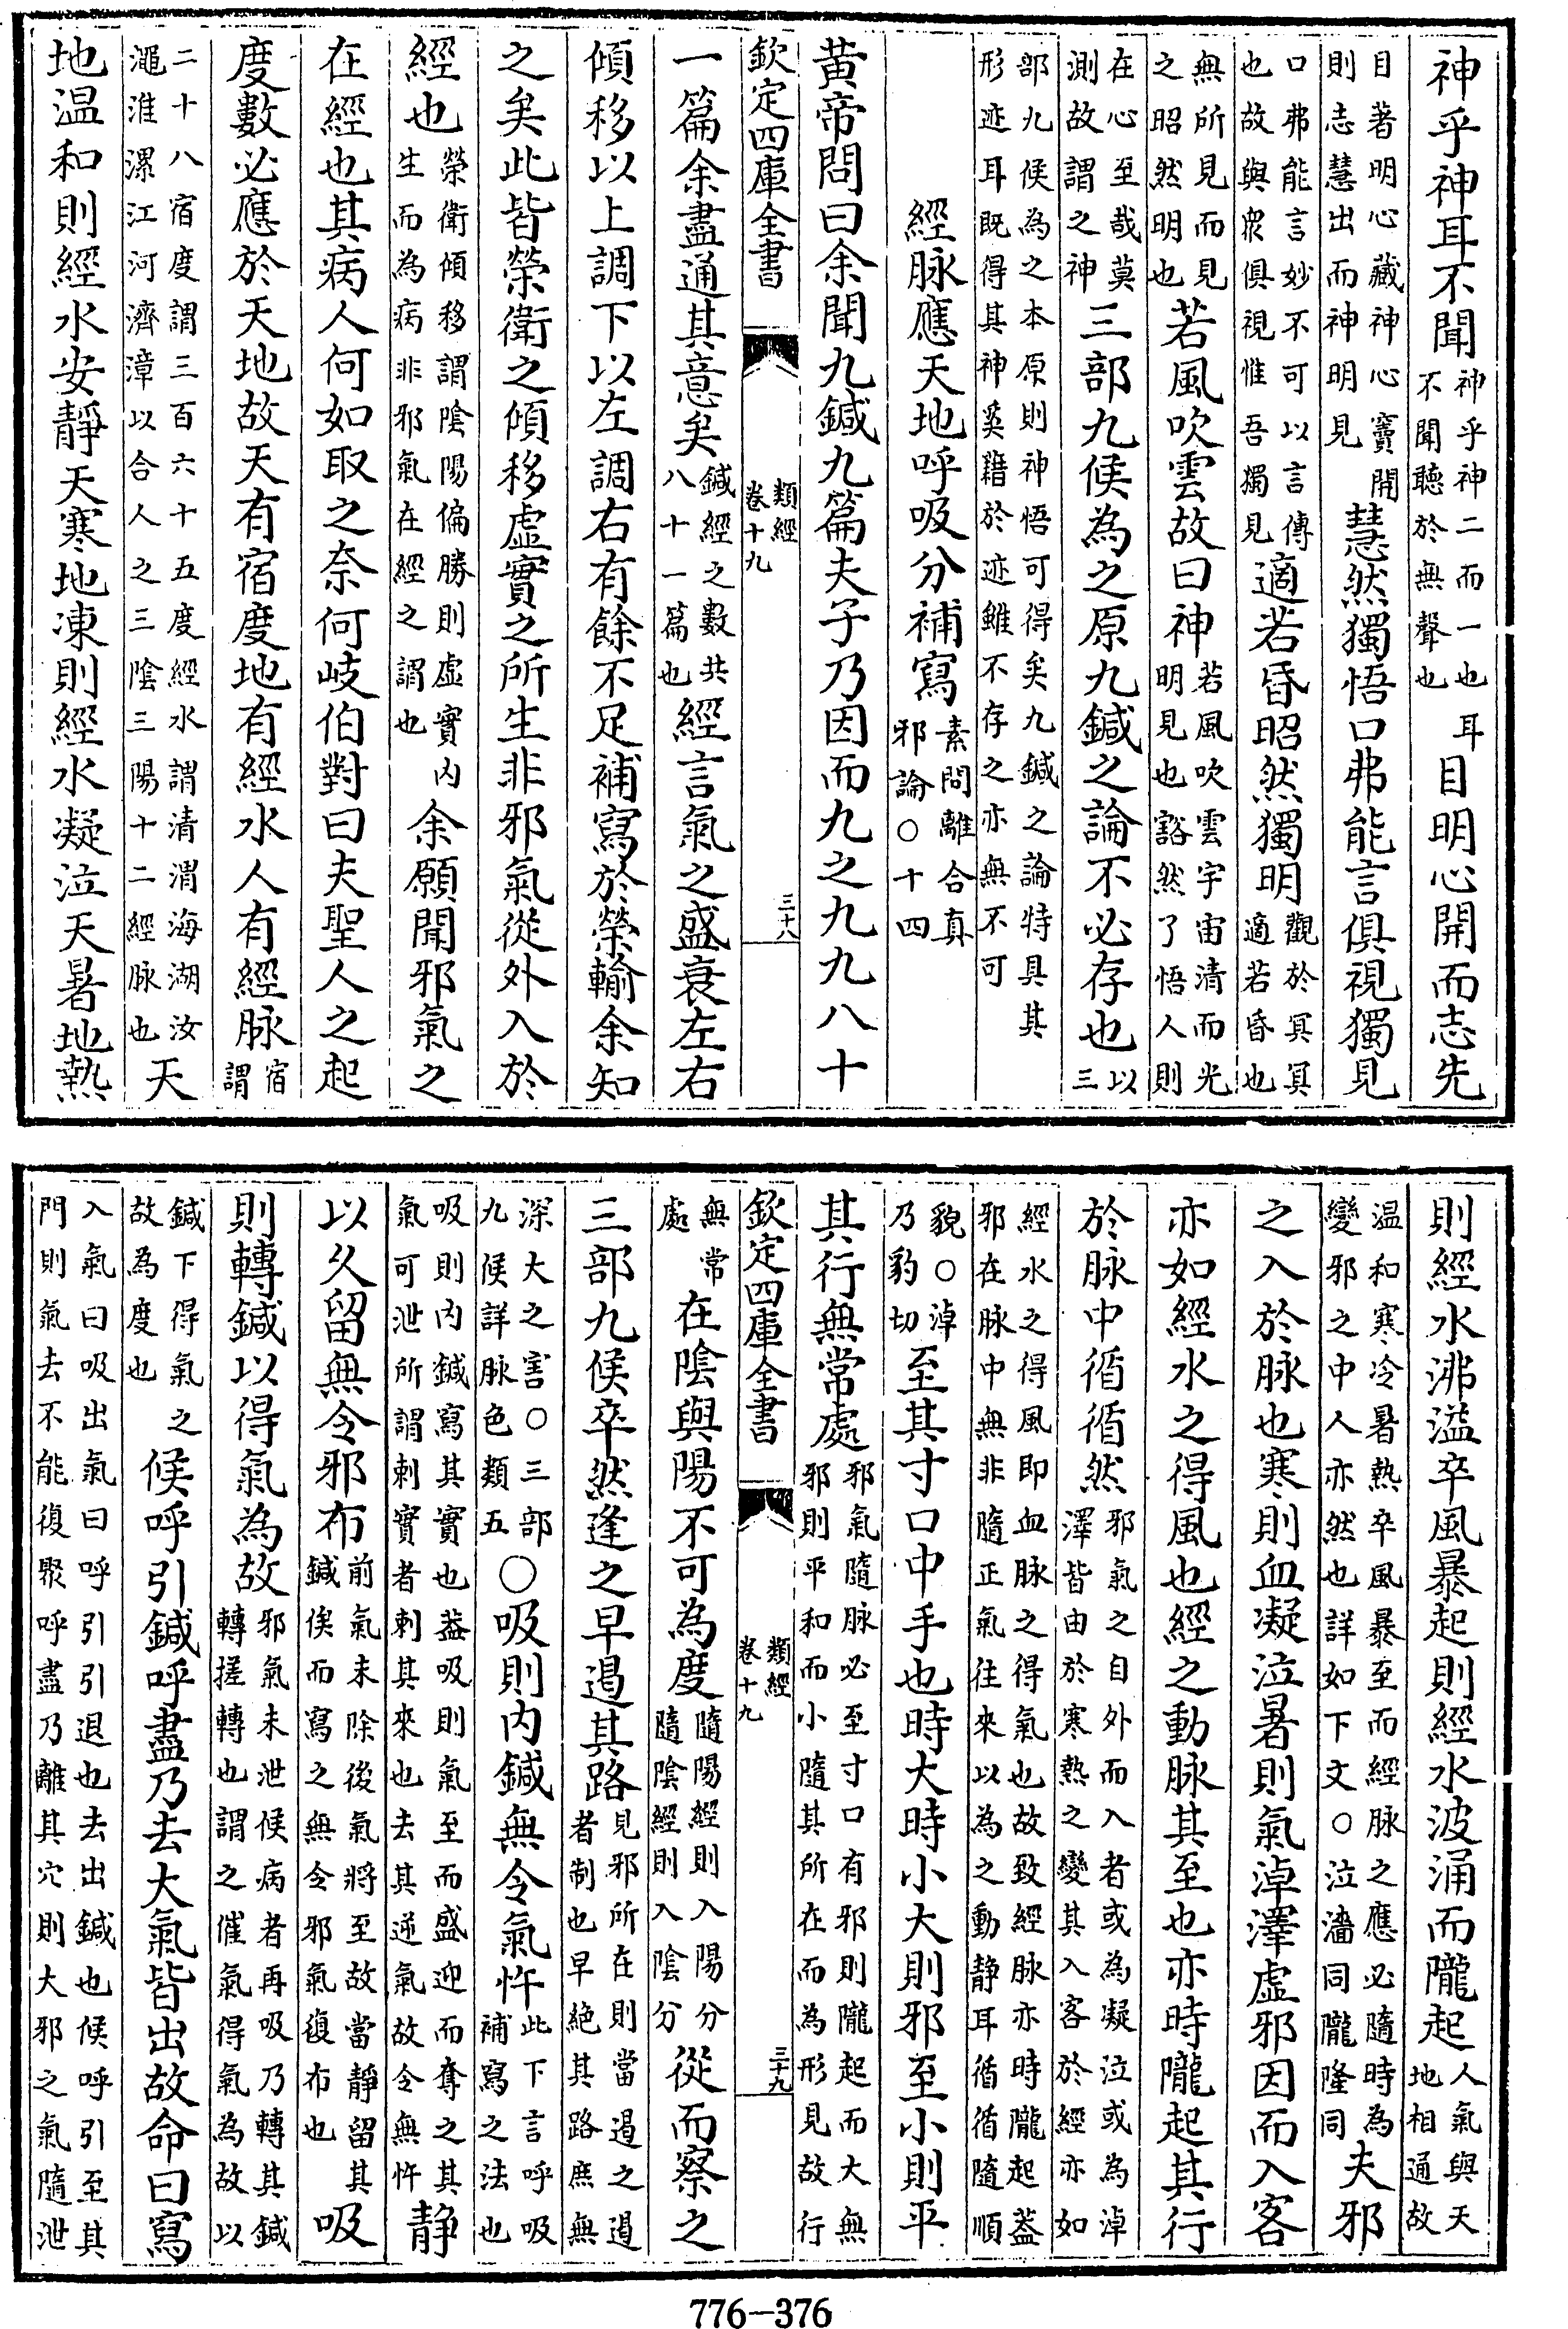 神乎神耳不聞神乎神二而一也耳不聞聽於無聲也目明心開而志先
目著明心藏神心竇開則志慧出而神明見慧然獨悟口弗能言俱視獨見
口弗能言妙不可以言傳也故與衆俱視惟吾獨見適若昏昭然獨明觀於冥冥適若昏也
無所見而見之昭然明也若風吹雲故曰神若風吹雲宇宙清而光明見也豁然了悟人則
在心至哉莫測故謂之神三部九候為之原九鍼之論不必存也以三
部九候為之本原則神悟可得矣九鍼之論特具其形迹耳既得其神奚藉於迹雖不存之亦無不可
經脉應天地呼吸分補寫素問離合真邪論○十四
黄帝問曰余聞九鍼九篇夫子乃因而九之九九八十
欽定四庫全書 類經 卷十九 三十八
一篇余盡通其意矣鍼經之數共八十一篇也經言氣之盛衰左右
傾移以上調下以左調右有餘不足補寫於滎輸余知
之矣此皆榮衛之傾移虛實之所生非邪氣從外入於
經也榮衛傾移謂陰陽偏勝則虛實内生而為病非邪氣在經之謂也余願聞邪氣之
在經也其病人何如取之奈何岐伯對曰夫聖人之起
度數必應於天地故天有宿度地有經水人有經脉宿謂
二十八宿度謂三百六十五度經水謂清渭海湖汝澠淮漯江河濟漳以合人之三陰三陽十二經脉也天
地温和則經水安靜天寒地凍則經水凝泣天暑地熱
則經水沸溢卒風暴起則經水波涌而隴起人氣與天地相通故
温和寒冷暑熱卒風暴至而經脉之應必隨時為變邪之中人亦然也詳如下文○泣濇同隴隆同夫邪
之入於脉也寒則血凝泣暑則氣淖澤虛邪因而入客
亦如經水之得風也經之動脉其至也亦時隴起其行
於脉中循循然邪氣之自外而入者或為凝泣或為淖澤皆由於寒熱之變其入客於經亦如
經水之得風即血脉之得氣也故致經脉亦時隴起蓋邪在脉中無非隨正氣往來以為之動靜耳循循隨順
貌○淖乃豹切至其寸口中手也時大時小大則邪至小則平
其行無常處邪氣隨脉必至寸口有邪則隴起而大無邪則平和而小隨其所在而為形見故行
欽定四庫全書 類經 卷十九 三十九
無常處在陰與陽不可為度隨陽經則入陽分隨陰經則入陰分從而察之
三部九候卒然逢之早遏其路見邪所在則當遏之遏者制也早絕其路庶無
深大之害○三部九候詳脉色類五○吸則内鍼無令氣忤此下言呼吸補寫之法也
吸則内鍼寫其實也蓋吸則氣至而盛迎而奪之其氣可泄所謂刺實者刺其來也去其逆氣故令無忤靜
以久留無令邪布前氣未除後氣將至故當靜留其鍼俟而寫之無令邪氣復布也吸
則轉鍼以得氣為故邪氣未泄候病者再吸乃轉其鍼轉搓轉也謂之催氣得氣為故以
鍼下得氣之故為度也候呼引鍼呼盡乃去大氣皆出故命曰寫
入氣曰吸出氣曰呼引引退也去出鍼也候呼引至其門則氣去不能復聚呼盡乃離其穴則大邪之氣隨泄
776—376